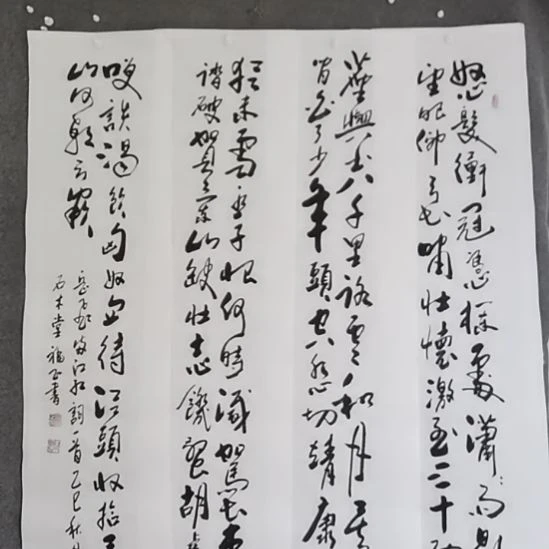 怒髮衝冠憑欄處瀟雨
望眼仰天長嘯壯懷激烈三十
塵與土八千里路雲和月莫
閒白了少年頭空悲切靖康
猶未雪臣子恨何時滅駕長車
踏破賀蘭山缺壯志饑餐胡
笑談渴飲匈奴血待從頭收拾
山河朝天闕
岳飛滿江紅詞一首乙巳秋月
石木堂福書